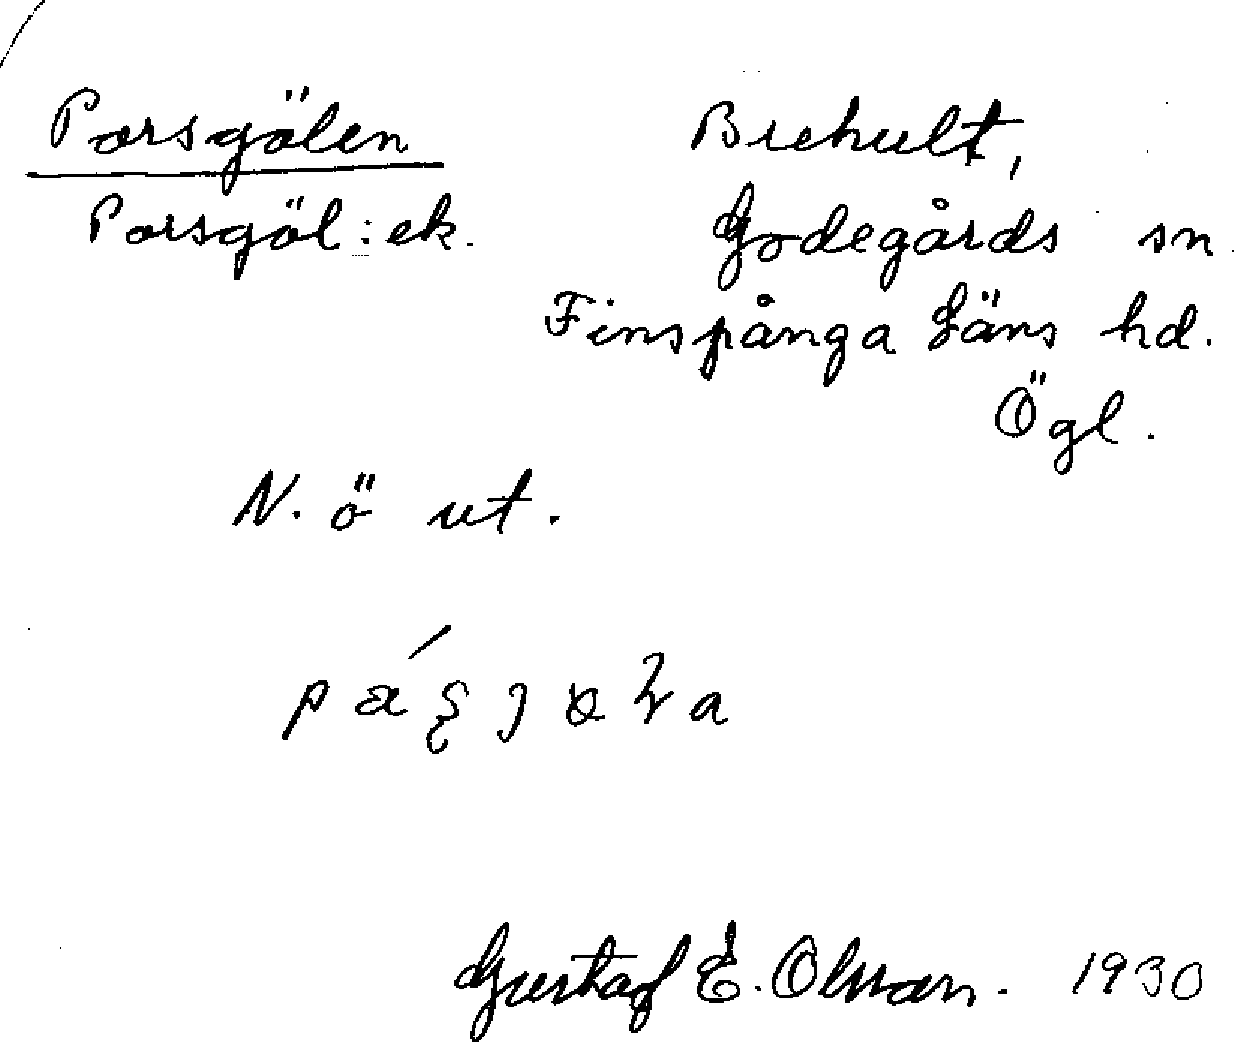 Porsgölen
Porsgöl: ek.
Brehult,
Godegårds sn.
Finspånga läns hd.
Ögl.
N. ö ut.
Gustaf E. Olsson. 1930